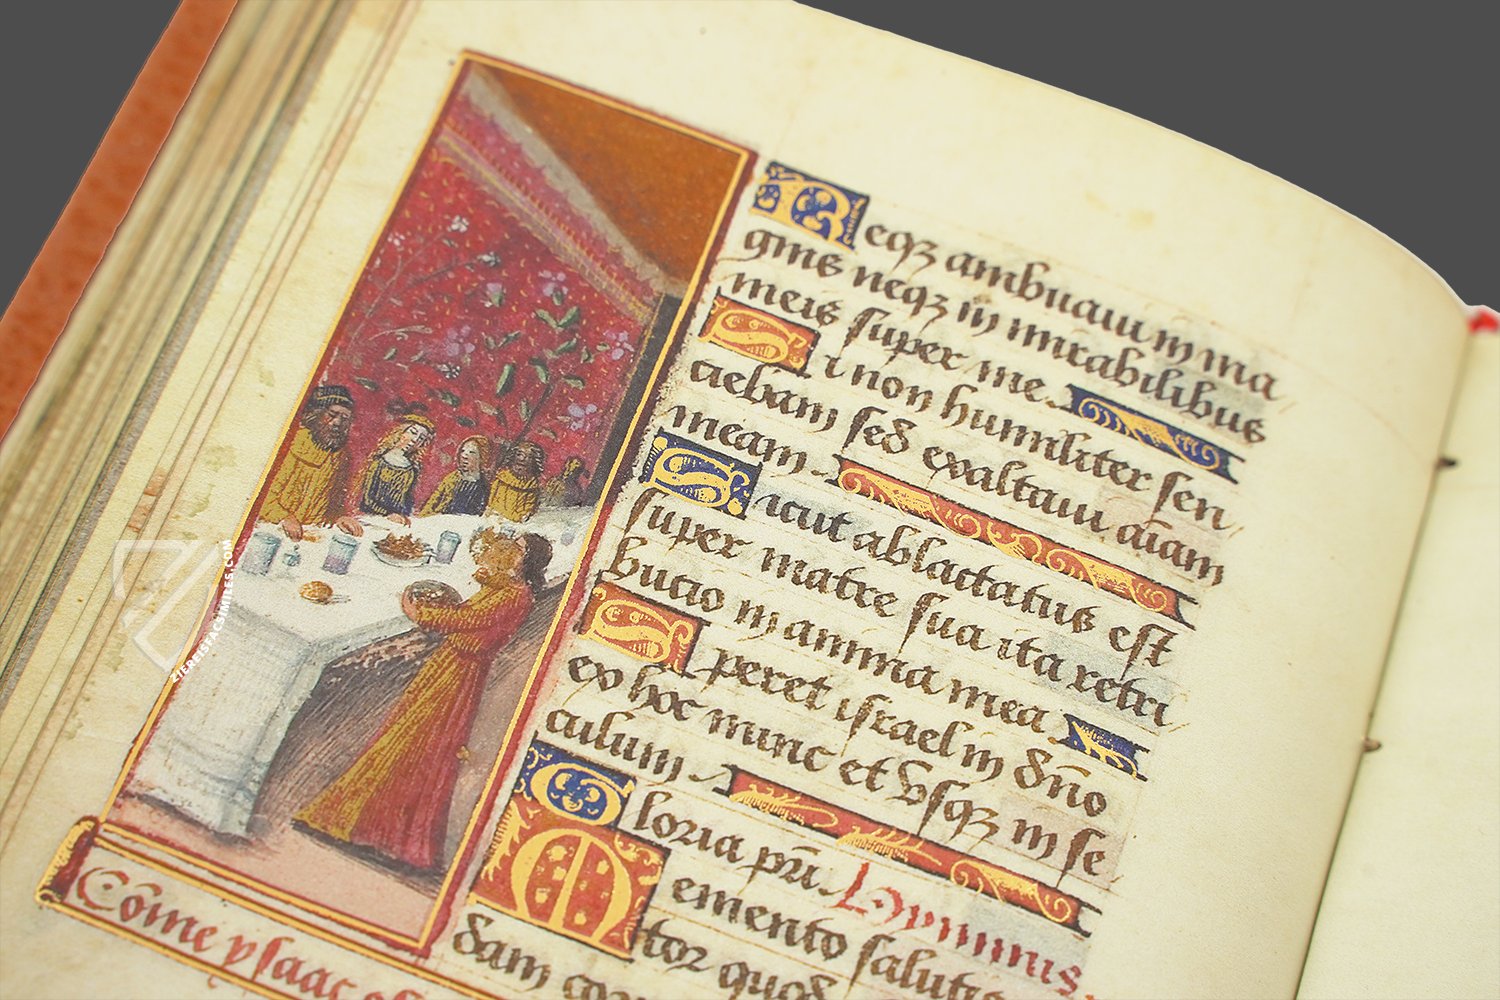 Neqз ambulaui in ma
gnis neqз in mirabilibus
meis super me.
Si non humiliter sen
ciebam sed exaltaui aīam
meam
Sicut ablactatus est
super matre sua ita retri
bucio in anima mea
Speret israel in dño
ex hoc nunc et vsqз in se
culum
Gloria pr̄i. Hymnus.
Memento salutis
tor quod
dam
Cōme ysaac
ZIEREISFACSIMILES.COM